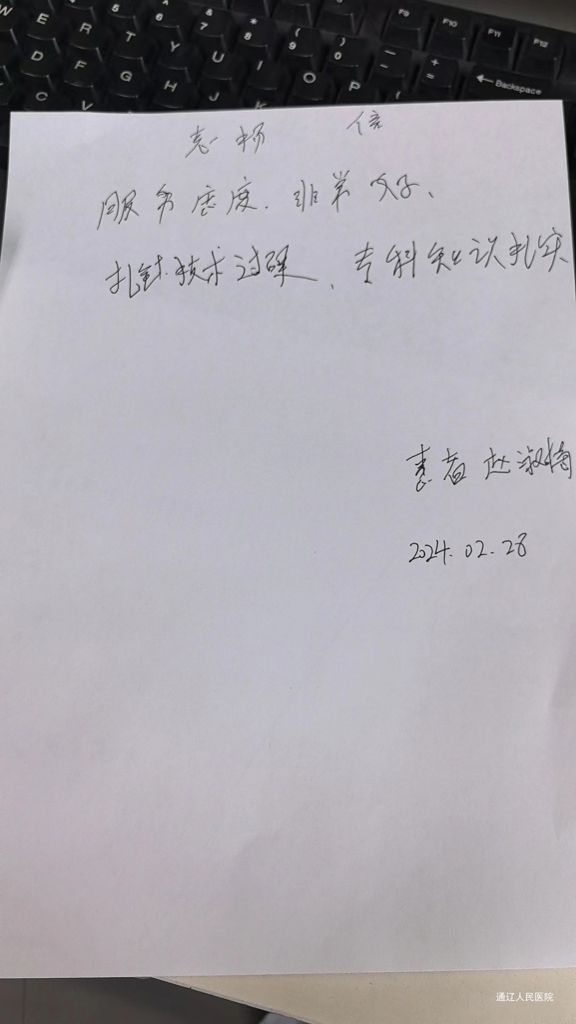 W E R T Y U O P
D F G H J K
C V
5 6 7 8 * ( 9 ) 0 - + =
F9 F10 F11 F12
Backspace
表扬 信
服务态度、非常好、
扎针技术过硬、专科知识扎实
患者 赵淑梅
2024.02.28
通辽人民医院